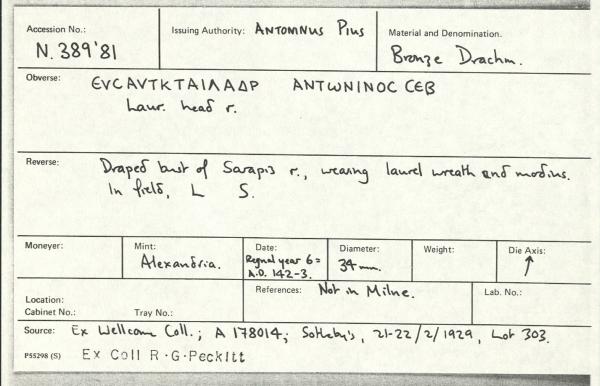 Accession No.: N.389'81
Issuing Authority: ANTOMNUS PIUS
Material and Denomination. Bronze Drachm.
Obverse: ЄVCAVTKTAIΛAΔP ANTWNINOC CЄB
Laur. head r.
Reverse: Draped bust of Sarapis r., wearing laurel wreath and modius.
In field, L S.
Moneyer:
Mint: Alexandria.
Date: Regnal year 6 = A.D. 142-3.
Diameter: 34 mm.
Weight:
Die Axis: ↑
Location:
Cabinet No.: Tray No.:
References: Not in Milne.
Lab. No.:
Source: Ex Wellcome Coll.; A 178014; Sotheby's, 21-22/2/1929, Lot 303.
P55298 (S) Ex Coll R·G·Peckitt